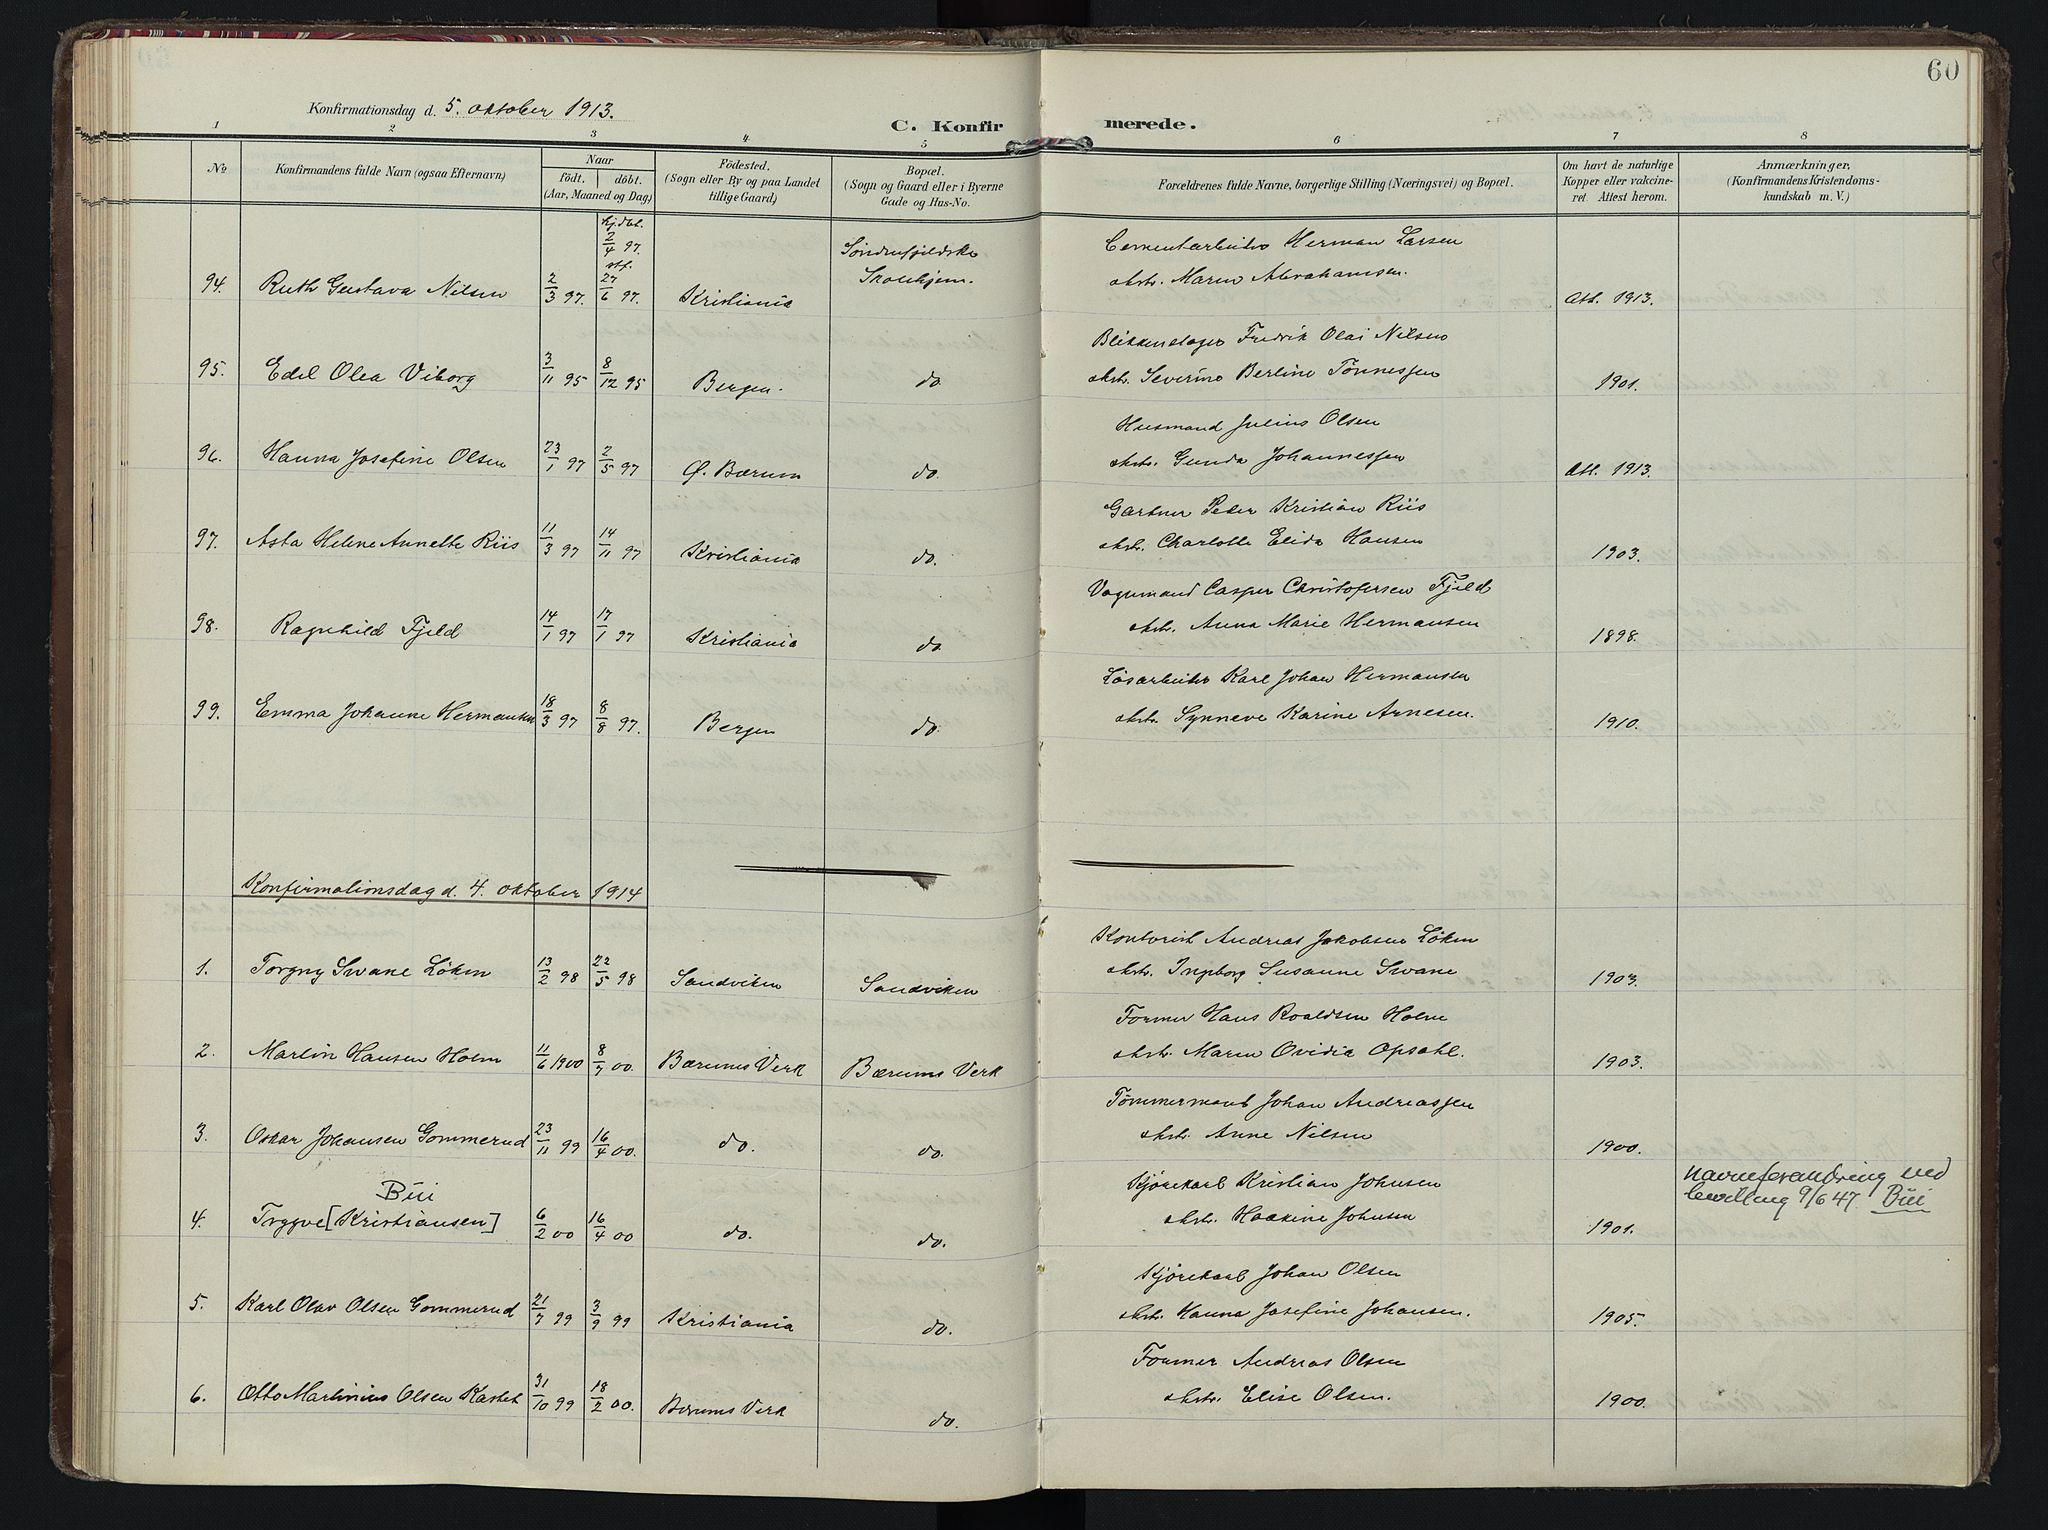 60
Konfirmationsdag d. 5. oktober 1913.
C. Konfirmerede.
1 2 3 4 5 6 7 8
No
Konfirmandens fulde Navn (ogsaa Efternavn)
Naar
födt. döbt.
(Aar, Maaned og Dag)
Födested.
(Sogn eller By og paa Landet
tillige Gaard)
Bopæl.
(Sogn og Gaard eller i Byerne
Gade og Hus-No.
Forældrenes fulde Navne, borgerlige Stilling (Næringsvei) og Bopæl.
Om havt de naturlige
Kopper eller vakcine-
ret. Attest herom.
Anmærkninger,
(Konfirmandens Kristendoms-
kundskab m. V.)
94. Ruth Gustava Nilsen 2/3 97. hj.dbt. 2/4 97. stf. 27/6 97. Kristiania Søndenfjeldske Skolehjem.
Cementarbeider Herman Larsen
ohstr. Maren Abrahamsen.
Att. 1913.
95. Edel Olea Viborg 3/11 95 8/12 95 Bergen. do.
Blikkenslager Fredrik Olai Nilsen
ohstr. Severine Berline Tønnessen
1901.
96. Hanna Josefine Olsen 23/1 97 2/5 97 Ø. Bærum do.
Husmand Julius Olsen
ohstr. Gunda Johannessen
Att. 1913.
97. Asta Helene Annette Riis 11/3 97 14/11 97 Kristiania do.
Gartner Peder Kristian Riis
ohstr. Charlotte Elida Hansen
1903.
98. Ragnhild Fjeld 14/1 97 17/1 97 Kristiania do
Vognmand Casper Christofersen Fjeld
ohstr. Anna Marie Hermansen
1898.
99. Emma Johanne Hermansen 18/3 97 8/8 97. Bergen do.
Løsarbeider Karl Johan Hermansen
ohstr. Synneve Karine Arnesen.
1910.
Konfirmationsdag d. 4. oktober 1914
1. Torgny Swane Löken 13/2 98 22/5 98 Sandviken Sandviken
Kontorist Andreas Jakobsen Löken
ohstr. Ingeborg Susanne Swane
1903.
2. Martin Hansen Holm 11/6 1900 8/7 00. Bærums Verk Bærums Verk
Former Hans Roaldsen Holm
ohstr. Maren Ovidia Opsahl.
1903.
3. Oskar Johansen Gommerud 23/11 99 16/4 00. do. do.
Tømmermand Johan Andreassen
ohstr. Anne Nilsen
1900.
Bii
4. Trygve [Kristiansen] 6/2 00 16/4 00 do. do.
Kjørekarl Kristian Johnsen
ohstr. Haakine Johnsen
1901.
Navneforandring ved
bevilling 9/6 47. Bii
5. Karl Olav Olsen Gommerud 21/7 99 3/9 99 Kristiania do.
Kjørekarl Johan Olsen
ohstr. Hanna Josefine Johansen.
1905.
6. Otto Martinius Olsen Kastet 31/10 99 18/2 00. Bærums Verk do.
Former Andreas Olsen
ohstr. Elise Olsen.
1900.